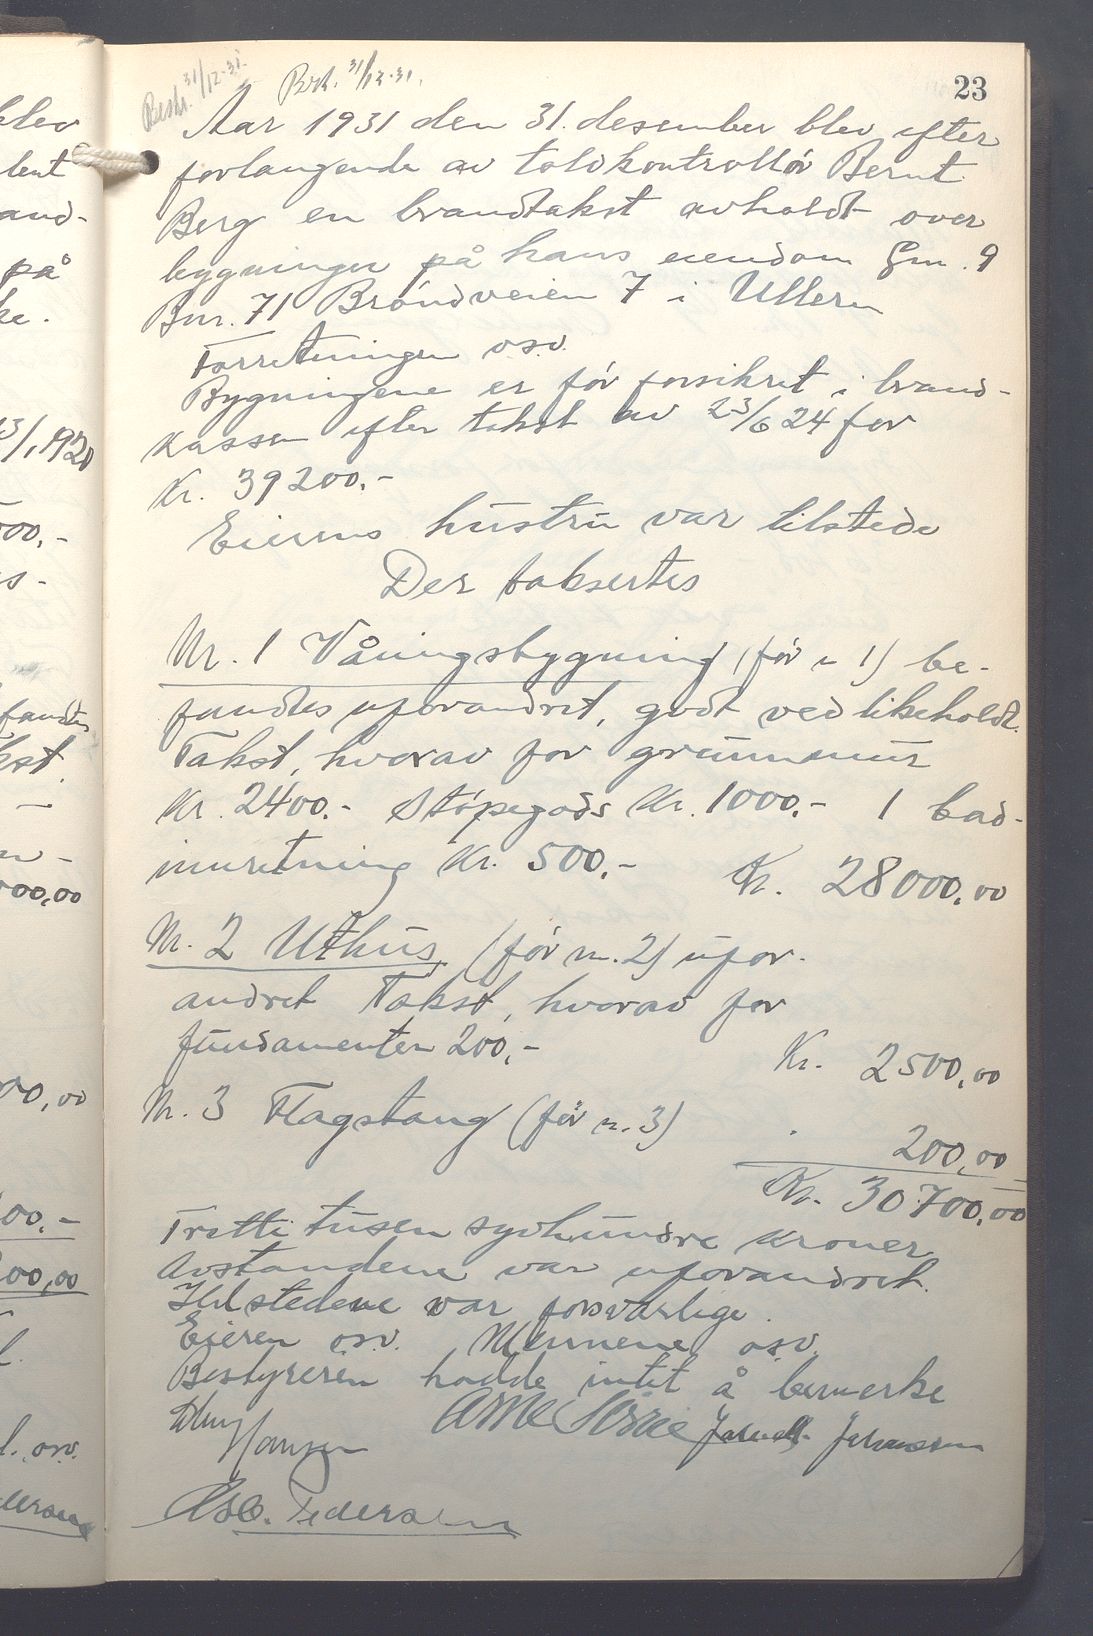 23
Bestr. 31/12-31. Brt. 31/12-31.
Aar 1931 den 31. desember blev efter
forlangende av toldkontrollør Bernt
Berg en brandtakst avholdt over
bygninger på hans eiendom Gm. 9
Bnr. 71 Brøndveien 7 i Ullern
Forretningen osv.
Bygningene er før forsikret i brand-
kassen efter takst av 23/6 24 for
Kr. 39200.-
Eierens hustru var tilstede
Der taksertes
Nr. 1 Våningsbygning (før n 1) be-
fandtes uforandret, godt vedlikeholdt.
Takst, hvorav for grunnmur
Kr. 2400.- Støpegods Kr. 1000.- 1 bad-
innretning Kr. 500.- Kr. 28000,00
Nr. 2 Uthus (før nr. 2) ufor-
andret Takst, hvorav for
fundamenter 200,- Kr. 2500,00
Nr. 3 Flagstang (før n. 3) 200,00
Kr. 30700,00
Tretti tusen syvhundre kroner
Avstandene var uforandret.
Ildstedene var forsvarlige.
Eieren osv. Mennene osv.
Bestyreren hadde intet å bemerke
Hansen Arne Johansen
Pedersen
blev
lent
and-
på
ke.
3/1 1920
000,-
s-
fandtes
kst.
-
n-
000,00
00,00
00.-
200,00
l.
l. osv.